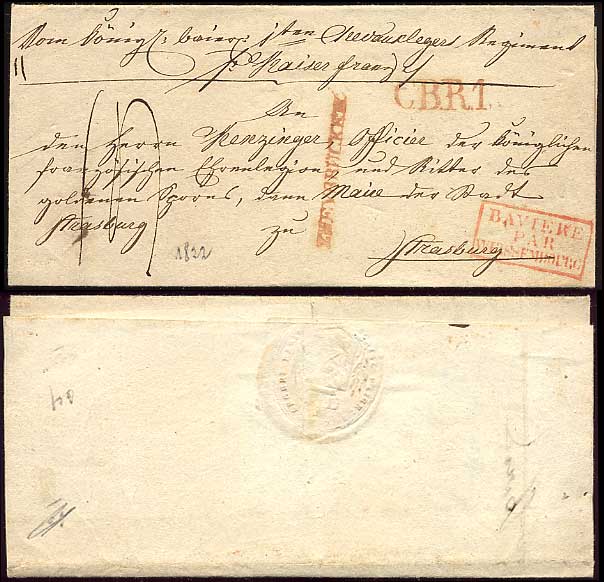 Vom Königl: baier: 1ten Chevauxlegers Regiment
Kaiser Franz
CBR1.
An
den Herrn Kenzinger, Officier der Königlichen
französischen Ehrenlegion und Ritter des
goldenen Sporns, dann Maire der Stadt
Strasburg
zu
Strasburg
ZWEYBRÜCKEN
BAVIERE
PAR
WEISSEMBOURG
1822